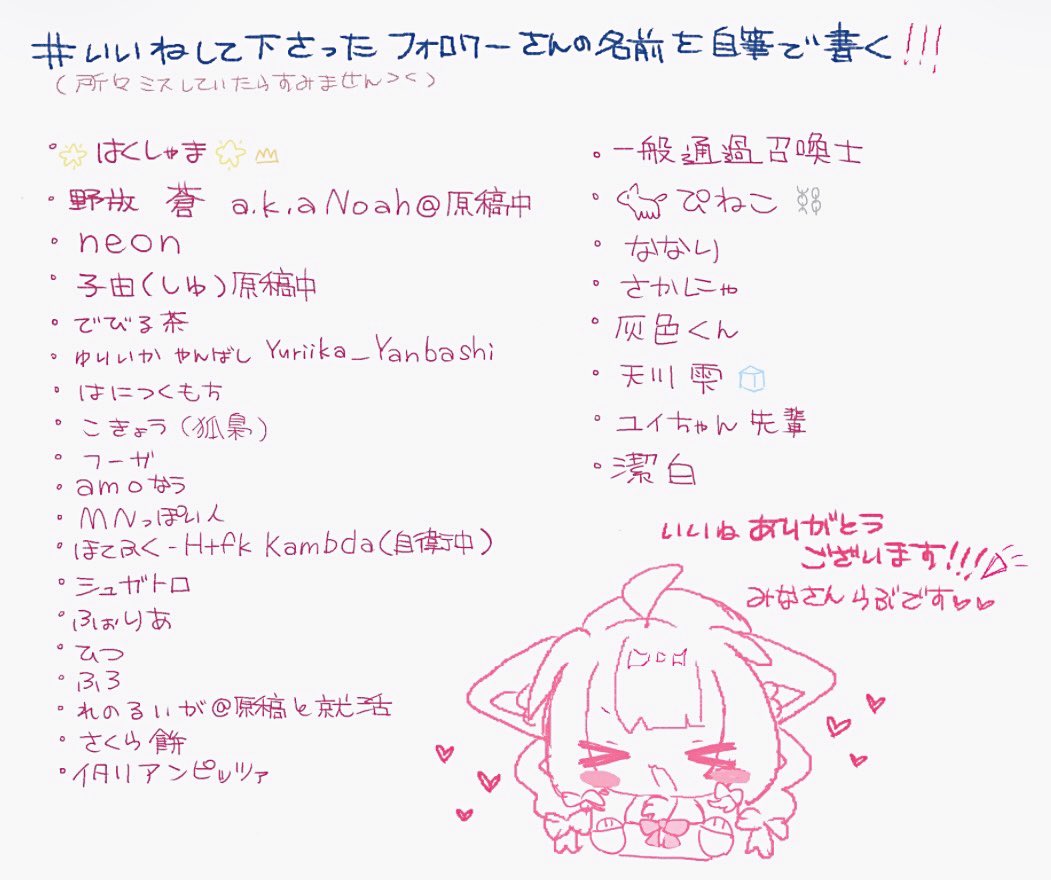 #いいねして下さったフォロワーさんの名前を自筆で書く!!!
(所々ミスしていたらすみません><)
・はくしゃま
・野放 蒼 a.k.a Noah@原稿中
・neon
・子由(しゅ)原稿中
・でびる茶
・ゆりいか やんばし Yuriika_Yanbashi
・はにつくもち
・こきょう(狐梟)
・フーガ
・amoなう
・MNっぽい人
・ほてふく-H+fk Kambda(自衛中)
・シュガトロ
・ふぉりあ
・ひつ
・ふろ
・れのるいが@原稿と就活
・さくら餅
・イタリアンピッツァ
・一般通過召喚士
・ぴねこ
・ななり
・さかにゃ
・灰色くん
・天川 雫
・ユイちゃん先輩
・潔白
いいねありがとう
ございます!!!
みなさんらぶです